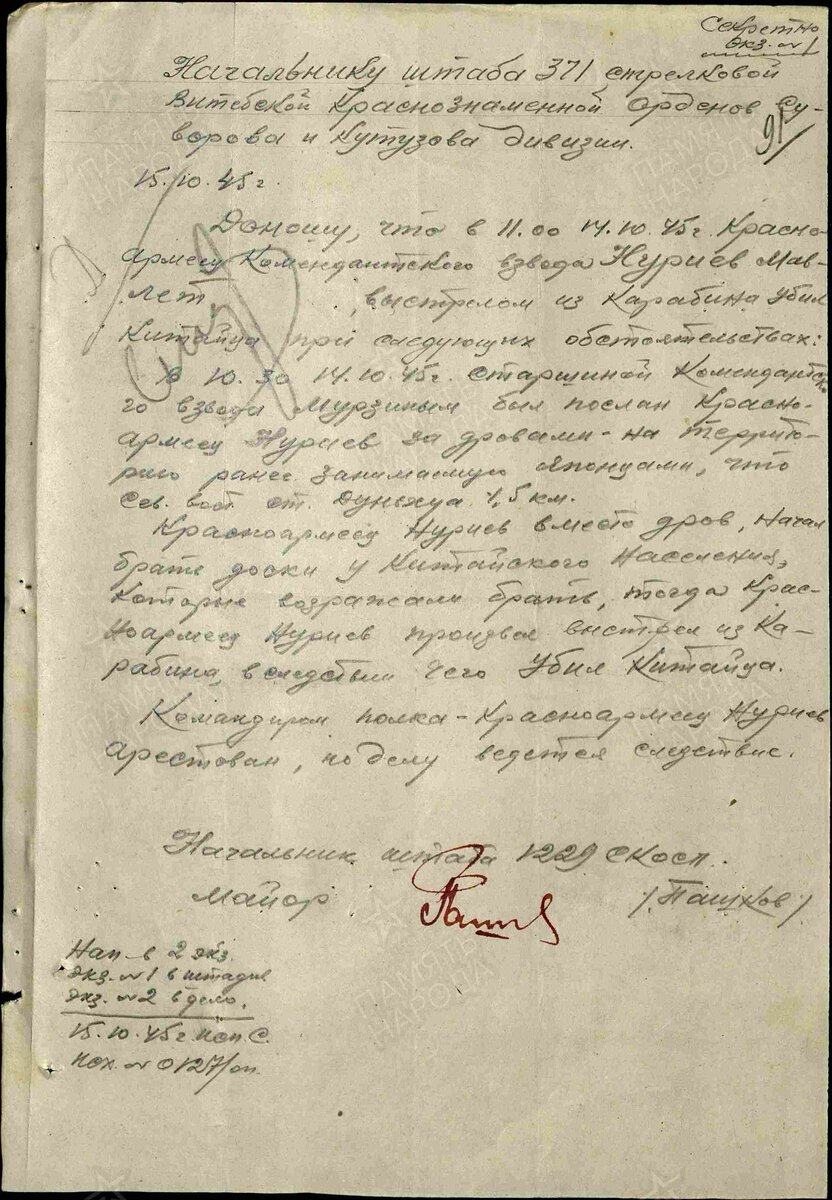 Секретно
Экз. № 1
Начальнику штаба 371 стрелковой
Витебской Краснознаменной Орденов Су-
ворова и Кутузова дивизии.
91
15.10.45г.
Доношу, что в 11.00 14.10.45г. Красно-
армеец Комендантского взвода Нуриев Мав-
лет , выстрелом из Карабина Убил
Китайца при следующих обстоятельствах:
В 10.30 14.10.45г. старшиной Комендантско-
го взвода Мурзиным был послан Красно-
армеец Нуриев за дровами - на террито-
рию ранее занимаемую Японцами, что
Сев. вост. ст. Дуньхуа 1,5 км.
Красноармеец Нуриев вместо дров, начал
брать доски у Китайского Населения,
Которые возражали брать, тогда Крас-
ноармеец Нуриев произвел выстрел из Ка-
рабина, вследствии чего Убил Китайца.
Командиром полка - Красноармеец Нуриев
арестован, по делу ведется следствие.
Начальник штаба 1229 СКОСП.
Майор /Пашков/
Нап. в 2 экз.
Экз. №1 в штадив
Экз. №2 в дело.
15.10.45г. исп С.
Исх. № 0127/оп.
ПАМЯТЬ
НАРОДА